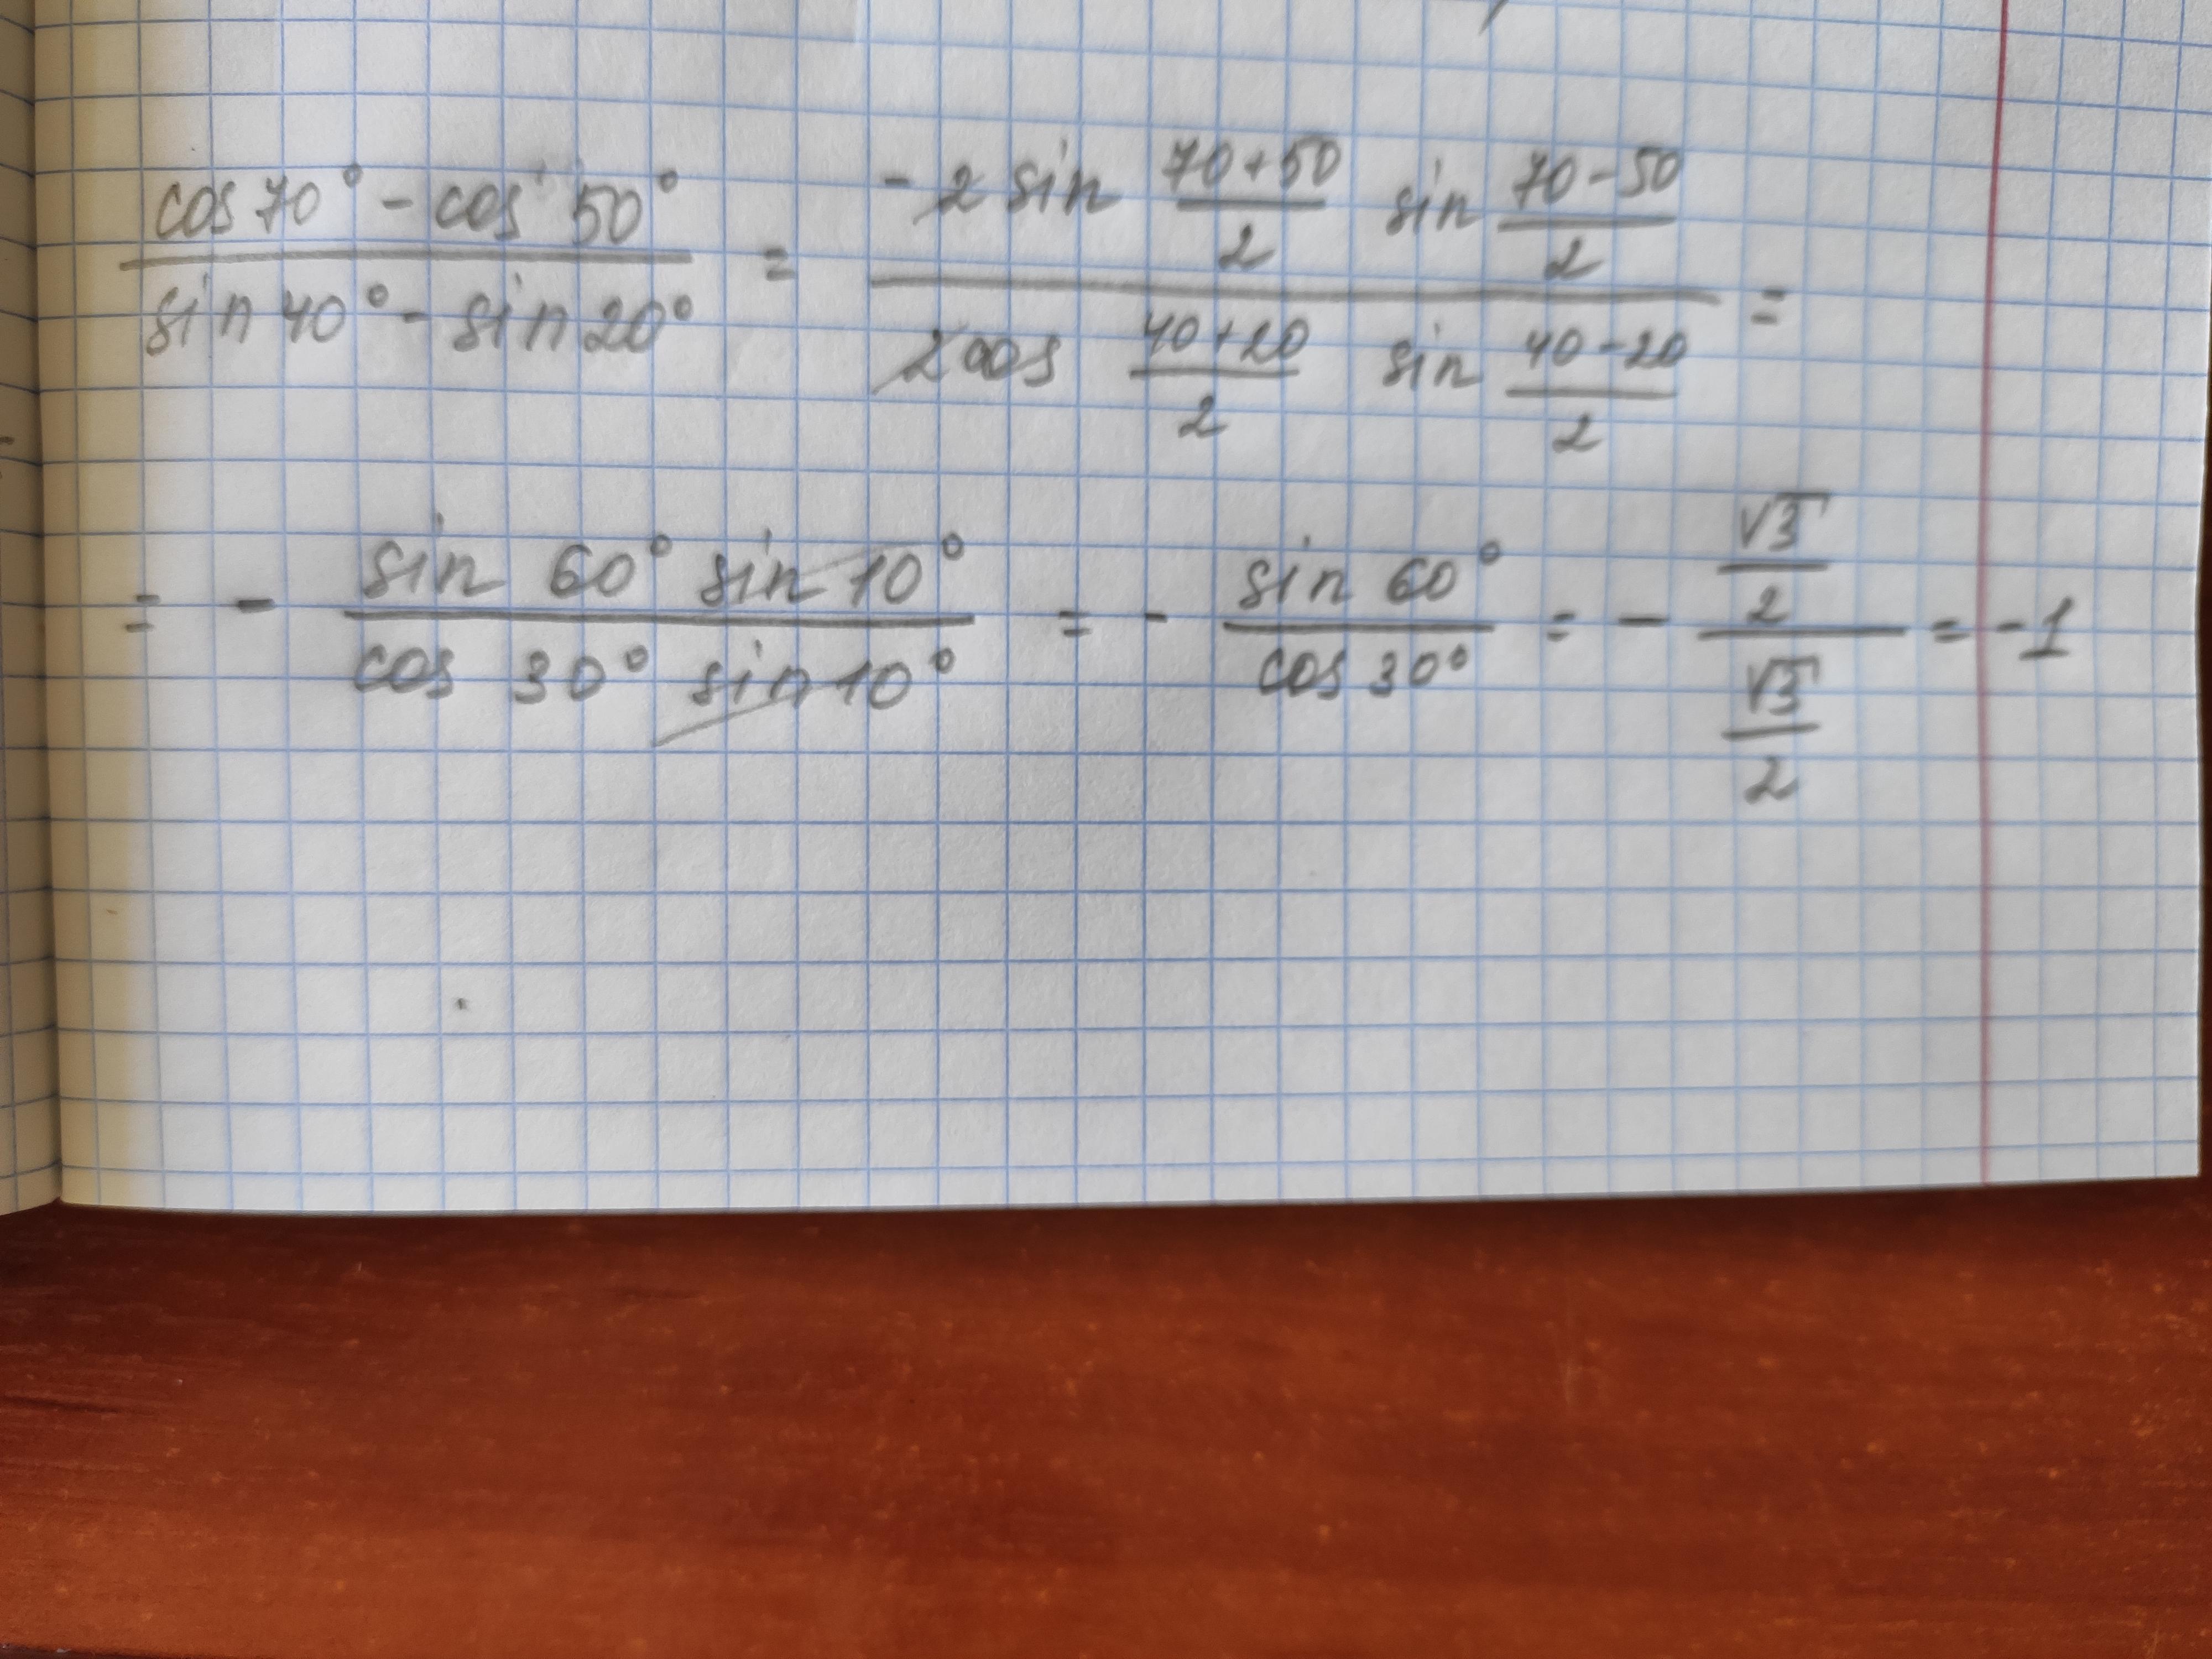 (cos 70° - cos 50°) / (sin 40° - sin 20°) = (-2 sin (70+50)/2 sin (70-50)/2) / (2cos (40+20)/2 sin (40-20)/2) =
= - (sin 60° sin 10°) / (cos 30° sin 10°) = - (sin 60°) / (cos 30°) = - (√3/2) / (√3/2) = -1